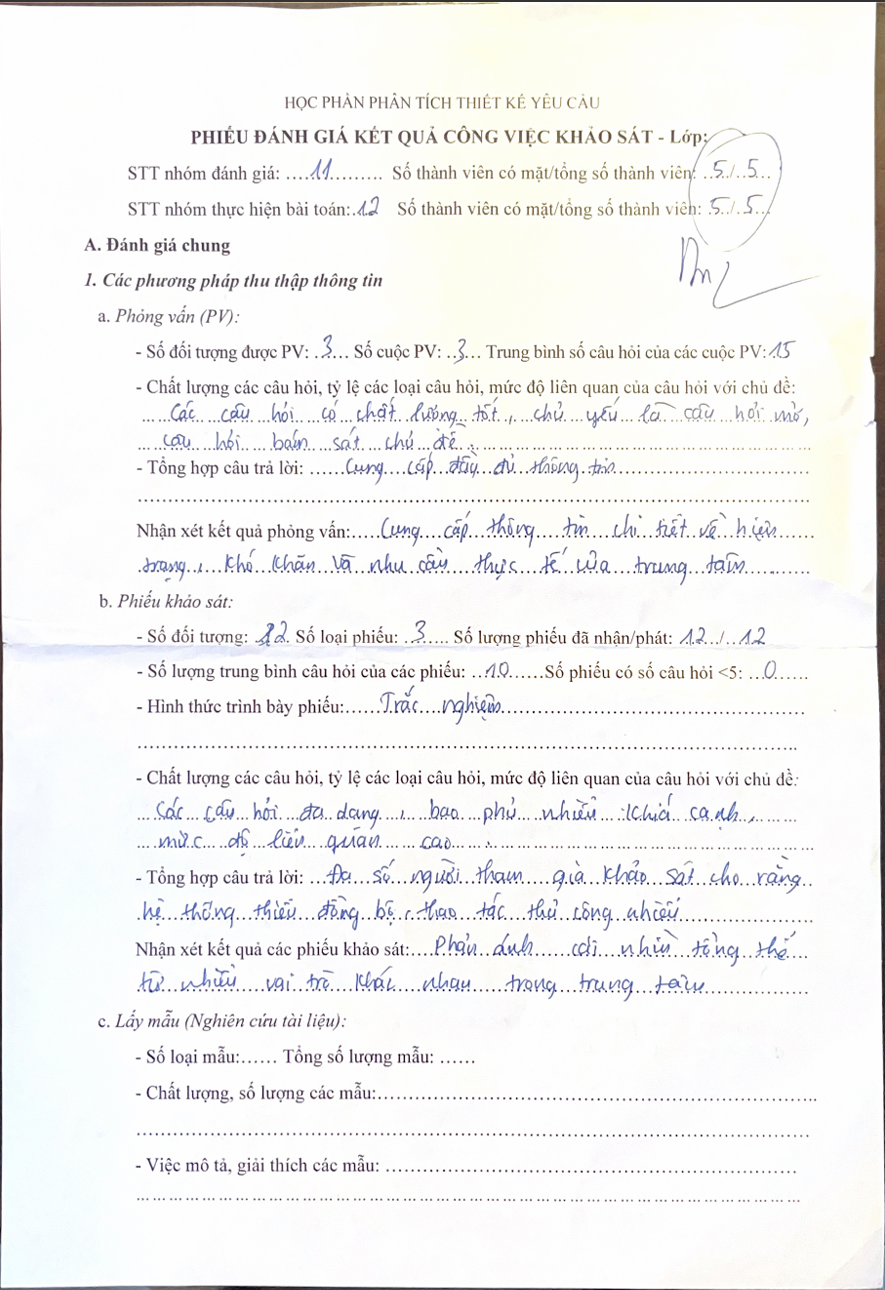 HỌC PHẦN PHÂN TÍCH THIẾT KẾ YÊU CẦU
PHIẾU ĐÁNH GIÁ KẾT QUẢ CÔNG VIỆC KHẢO SÁT - Lớp:
STT nhóm đánh giá: ....11.......... Số thành viên có mặt/tổng số thành viên: ..5../..5...
STT nhóm thực hiện bài toán:.12 Số thành viên có mặt/tổng số thành viên: .5../.5...
A. Đánh giá chung
1. Các phương pháp thu thập thông tin
a. Phỏng vấn (PV):
- Số đối tượng được PV: ..3... Số cuộc PV: ..3... Trung bình số câu hỏi của các cuộc PV:15
- Chất lượng các câu hỏi, tỷ lệ các loại câu hỏi, mức độ liên quan của câu hỏi với chủ đề:
Các câu hỏi có chất lượng tốt, chủ yếu là câu hỏi mở,
câu hỏi bám sát chủ đề.
- Tổng hợp câu trả lời: ......Cung cấp đầy đủ thông tin......
Nhận xét kết quả phỏng vấn:.....Cung cấp thông tin chi tiết về hiện
trạng, khó khăn và nhu cầu thực tế của trung tâm
b. Phiếu khảo sát:
- Số đối tượng: 12. Số loại phiếu: ..3.... Số lượng phiếu đã nhận/phát: 12../..12
- Số lượng trung bình câu hỏi của các phiếu: ..10......Số phiếu có số câu hỏi <5: ...0......
- Hình thức trình bày phiếu:......Trắc nghiệm......
- Chất lượng các câu hỏi, tỷ lệ các loại câu hỏi, mức độ liên quan của câu hỏi với chủ đề:
Các câu hỏi đa dạng, bao phủ nhiều khía cạnh,
mức độ liên quan cao
- Tổng hợp câu trả lời: ...Đa số người tham gia khảo sát cho rằng
hệ thống thiếu đồng bộ, thao tác thủ công nhiều
Nhận xét kết quả các phiếu khảo sát:....Phản ánh cái nhìn tổng thể
từ nhiều vai trò khác nhau trong trung tâm
c. Lấy mẫu (Nghiên cứu tài liệu):
- Số loại mẫu:...... Tổng số lượng mẫu: ......
- Chất lượng, số lượng các mẫu:......
- Việc mô tả, giải thích các mẫu: ......